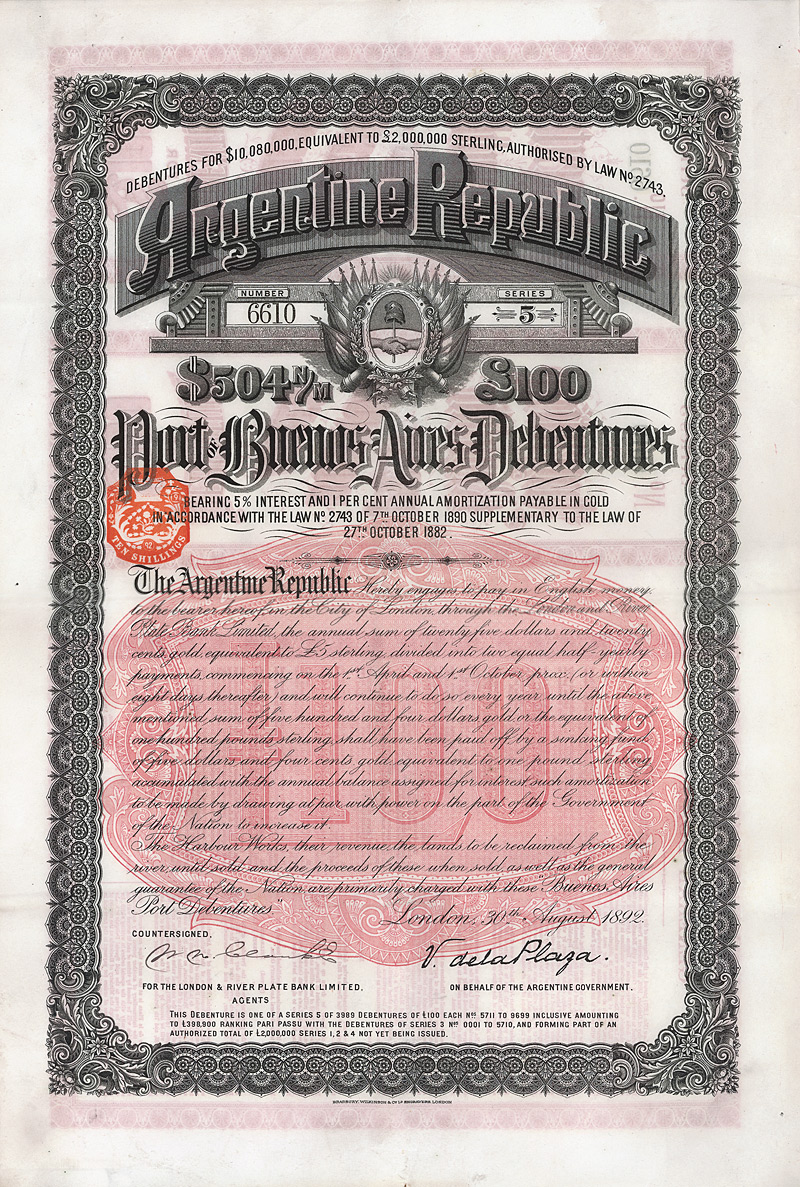 DEBENTURES FOR $10,080,000, EQUIVALENT TO £2,000,000 STERLING, AUTHORISED BY LAW Nº 2743.
Argentine Republic
NUMBER
6610
SERIES
5
$504 N/M £100
Port of Buenos Aires Debentures
BEARING 5% INTEREST AND 1 PER CENT ANNUAL AMORTIZATION PAYABLE IN GOLD
IN ACCORDANCE WITH THE LAW Nº 2743 OF 7TH OCTOBER 1890 SUPPLEMENTARY TO THE LAW OF
27TH OCTOBER 1882.
TEN SHILLINGS
The Argentine Republic Hereby engages to pay in English money
to the bearer hereof in the City of London, through the London and River
Plate Bank Limited, the annual sum of twenty five dollars and twenty
cents gold, equivalent to £5 sterling, divided into two equal half-yearly
payments, commencing on the 1st April and 1st October, prox. (or within
eight days thereafter) and will continue to do so every year until the above
mentioned sum of five hundred and four dollars gold or the equivalent of
one hundred pounds sterling, shall have been paid off, by a sinking fund
of five dollars and four cents gold, equivalent to one pound sterling
accumulated with the annual balance assigned for interest, such amortization
to be made by drawing at par, with power on the part of the Government
of the Nation to increase it.
The Harbour Works, their revenue, the lands to be reclaimed from the
river until sold and the proceeds of these when sold, as well as the general
guarantee of the Nation are primarily charged with these "Buenos Aires
Port Debentures" London, 30th August 1892.
£100
COUNTERSIGNED.
V. de la Plaza.
FOR THE LONDON & RIVER PLATE BANK LIMITED.
AGENTS
ON BEHALF OF THE ARGENTINE GOVERNMENT.
THIS DEBENTURE IS ONE OF A SERIES 5 OF 3989 DEBENTURES OF £100 EACH Nos 5711 TO 9699 INCLUSIVE AMOUNTING
TO £398,900 RANKING PARI PASSU WITH THE DEBENTURES OF SERIES 3 Nos 0001 TO 5710, AND FORMING PART OF AN
AUTHORIZED TOTAL OF £2,000,000 SERIES 1, 2 & 4 NOT YET BEING ISSUED.
BRADBURY, WILKINSON & Co Ld ENGRAVERS, LONDON